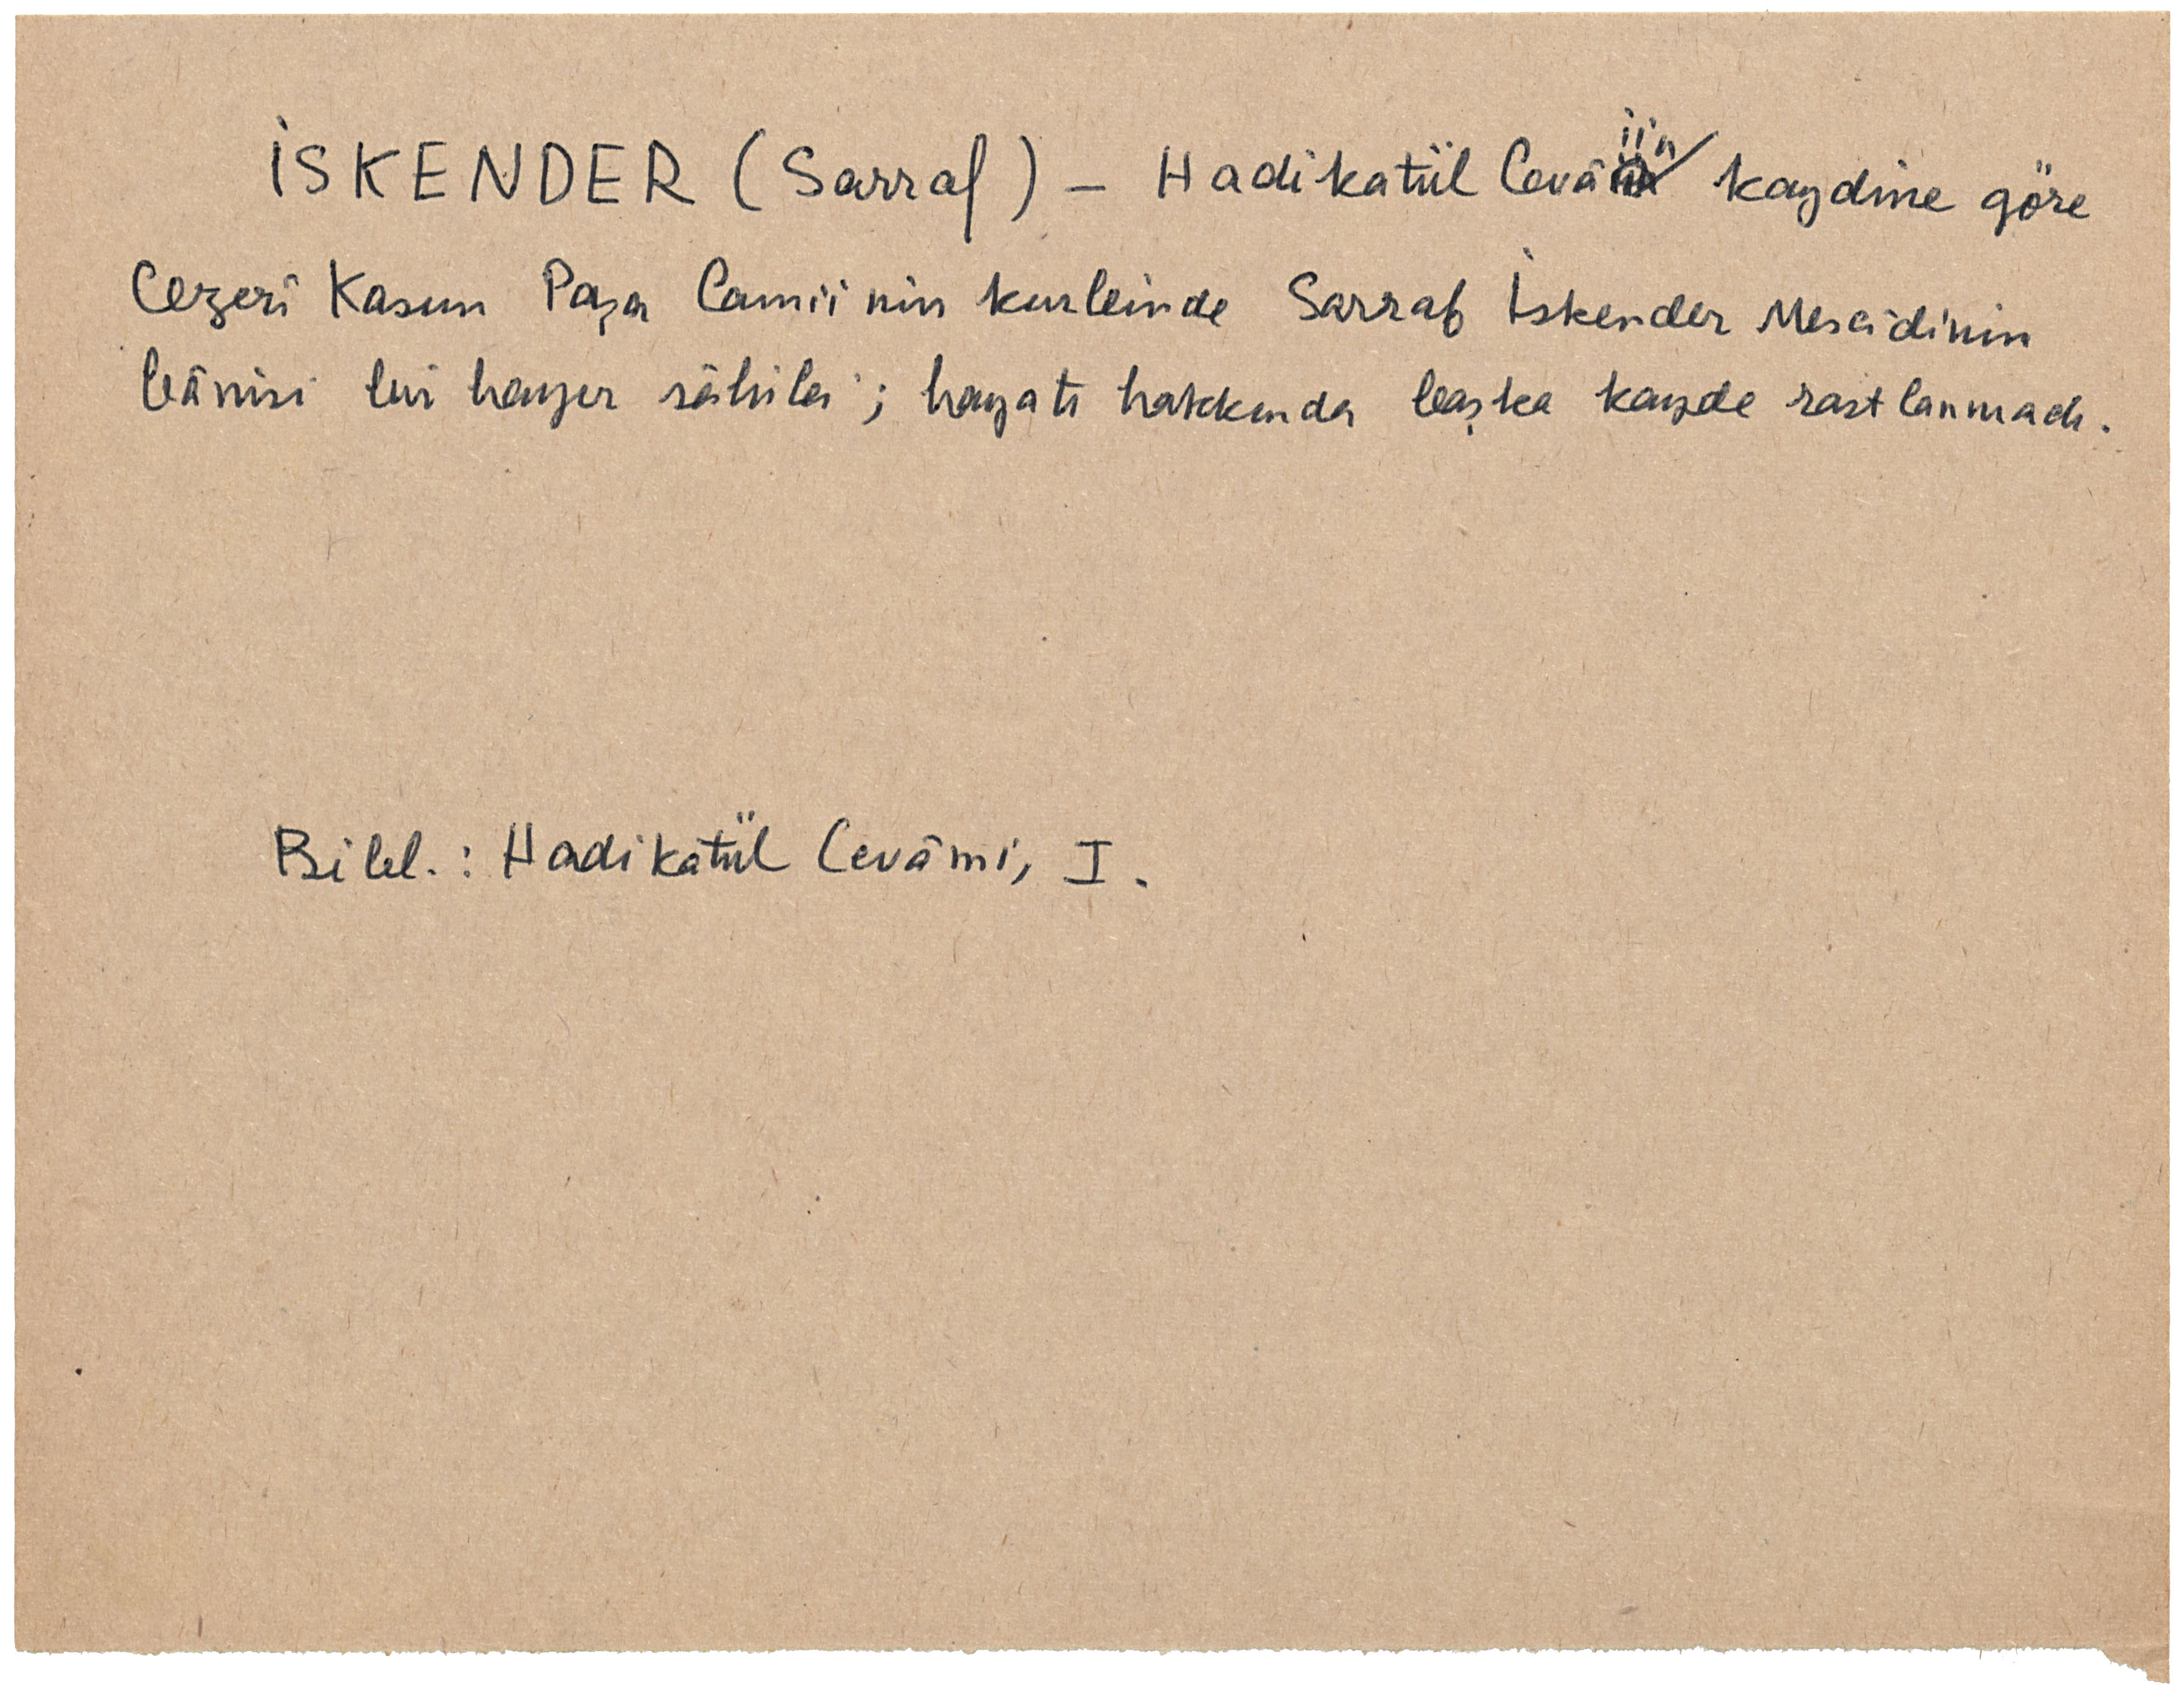 İSKENDER (Sarraf) – Hadikatül Cevâmiin kaydine göre
Cezerî Kasım Paşa Camiinin kurbinde Sarraf İskender Mescidinin
bânisi bir hayır sâhibi; hayatı hakkında başka kayde rastlanmadı.
Bibl.: Hadikatül Cevâmi, I.